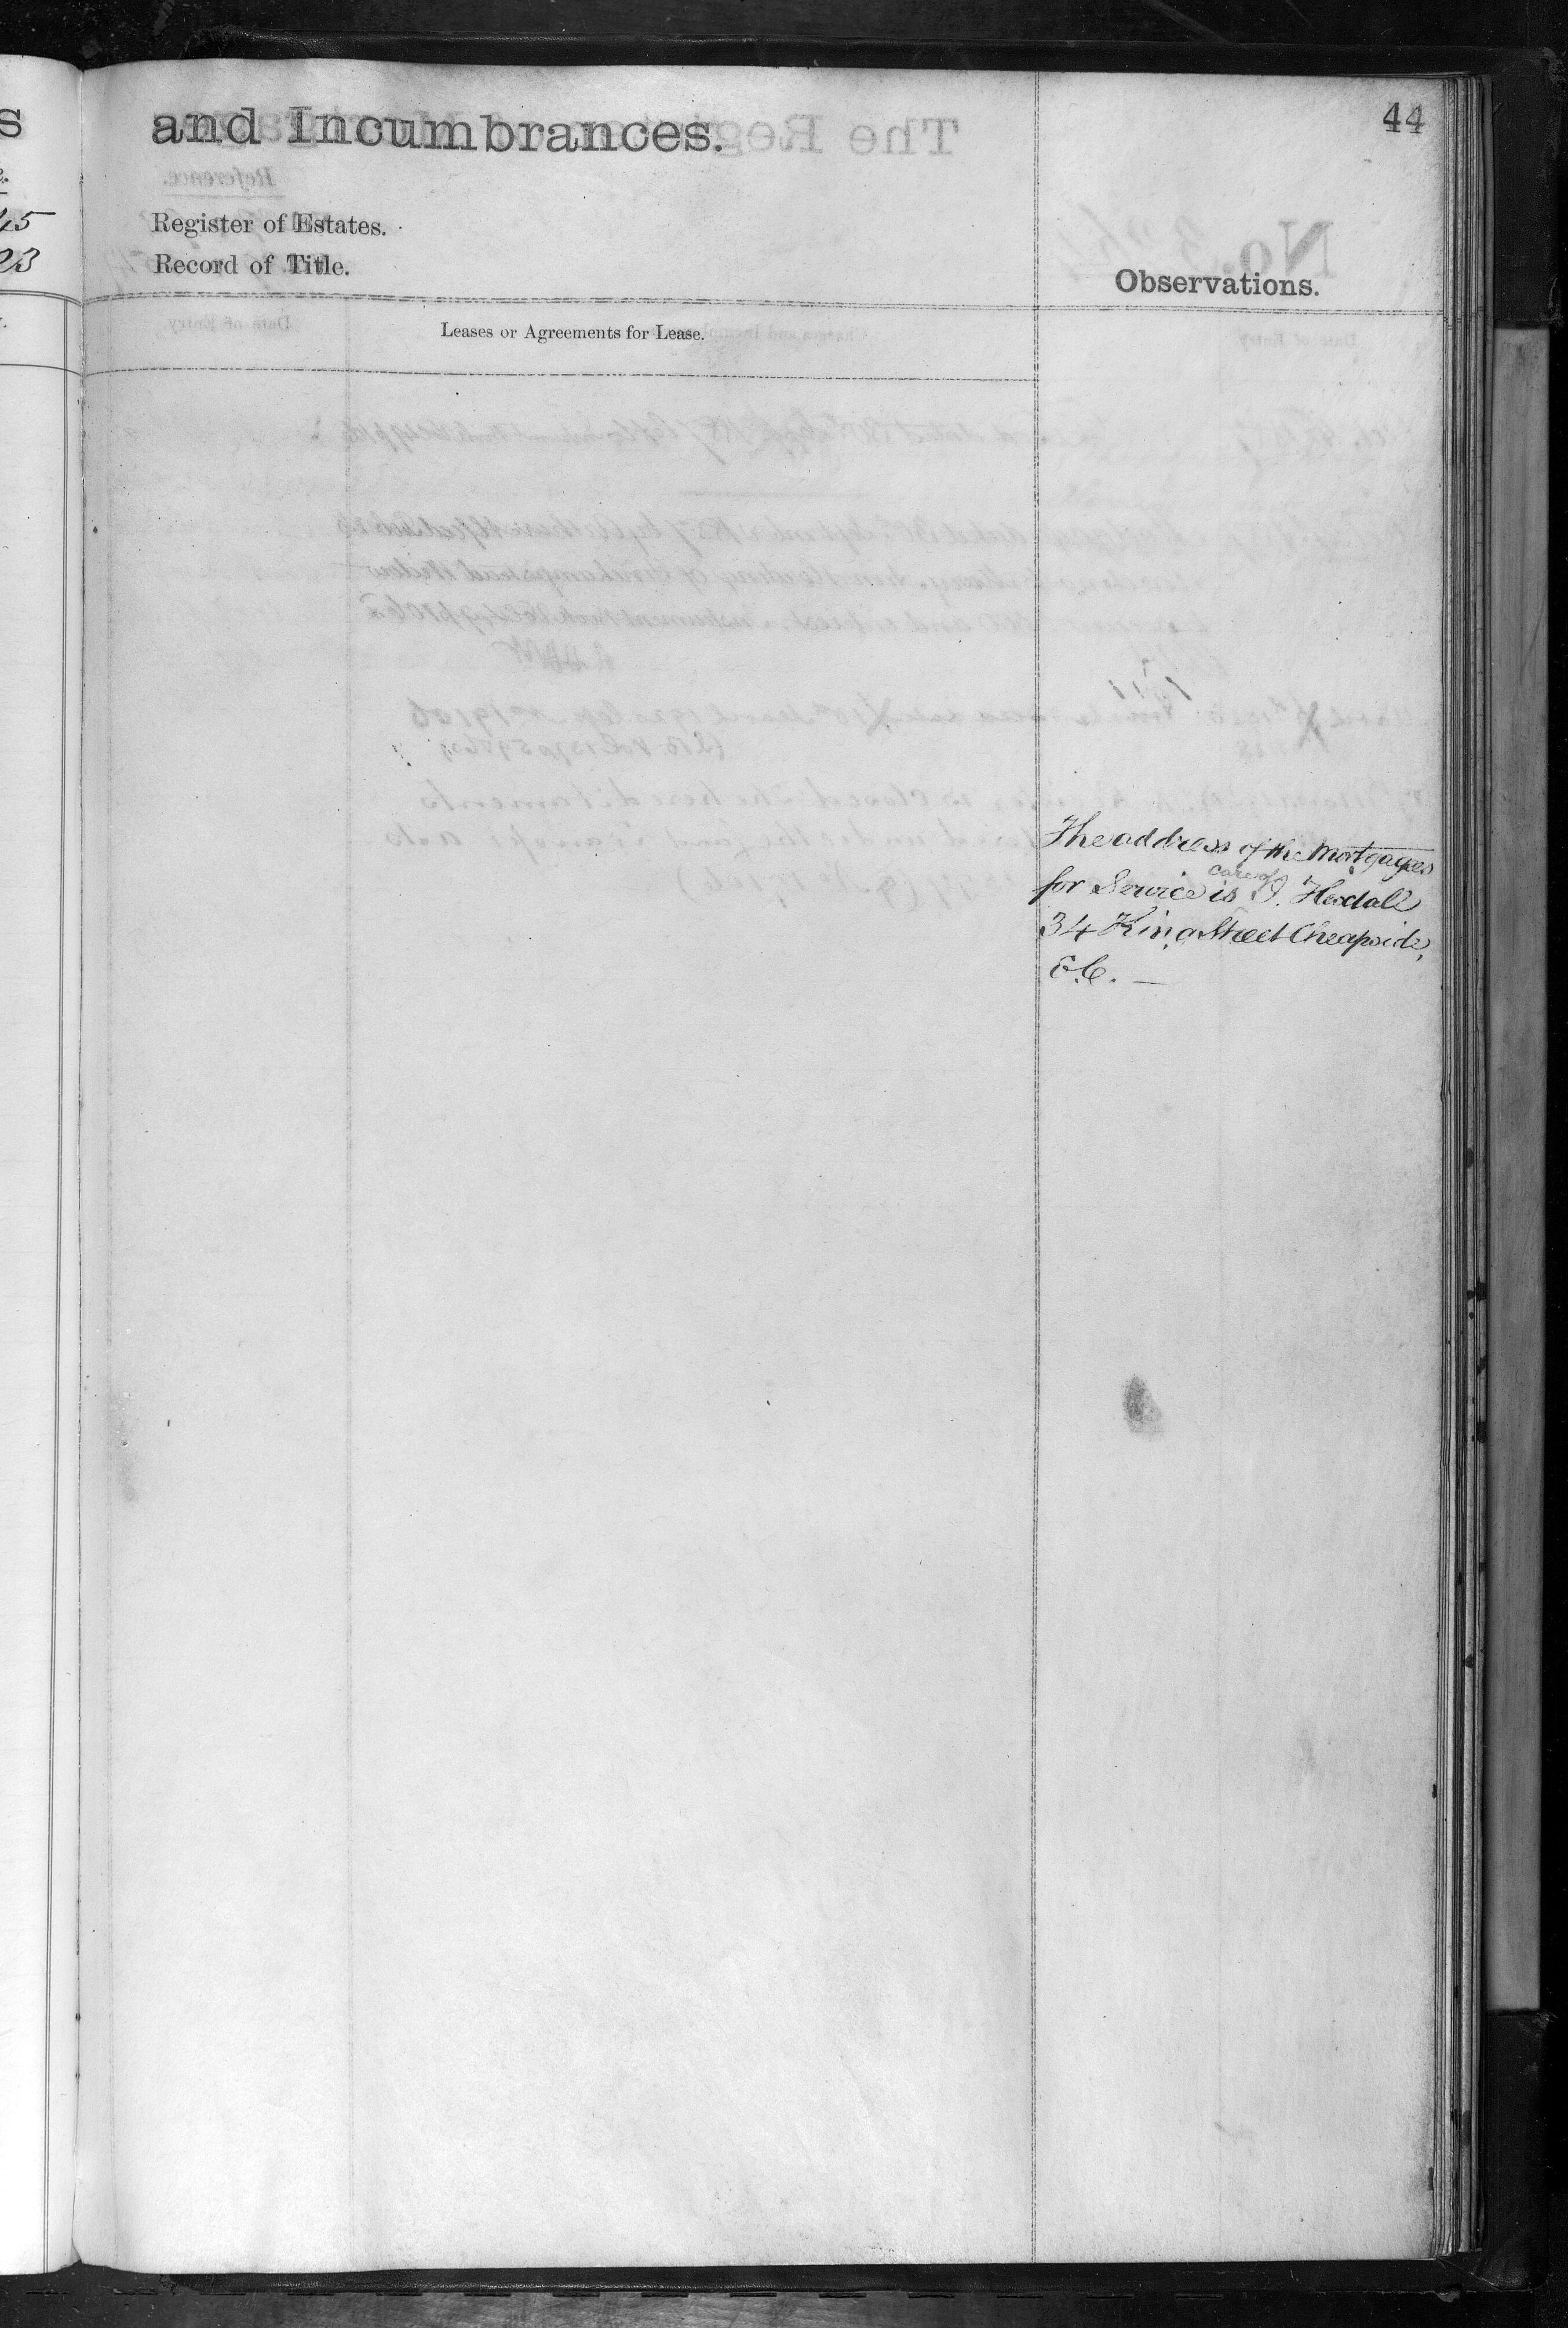 44
and Incumbrances.
Register of Estates.
Record of Title.
Observations.
Leases or Agreements for Lease.
The address of the Mortgagees
care of
for Service is
34 King Street Cheapside,
E.C. —
45
23